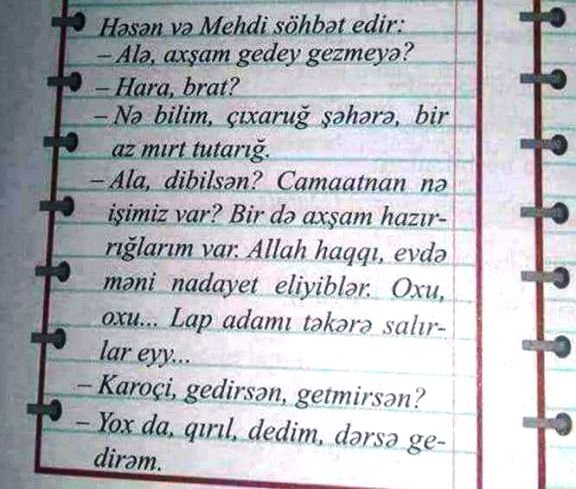 Həsən və Mehdi söhbət edir:
– Alə, axşam gedey gezmeyə?
– Hara, brat?
– Nə bilim, çıxaruğ şəhərə, bir
az mırt tutarığ.
– Ala, dibilsən? Camaatnan nə
işimiz var? Bir də axşam hazır-
rığlarım var. Allah haqqı, evdə
məni nadayet eliyiblər. Oxu,
oxu... Lap adamı təkərə salır-
lar eyy...
– Karoçi, gedirsən, getmirsən?
– Yox da, qırıl, dedim, dərsə ge-
dirəm.